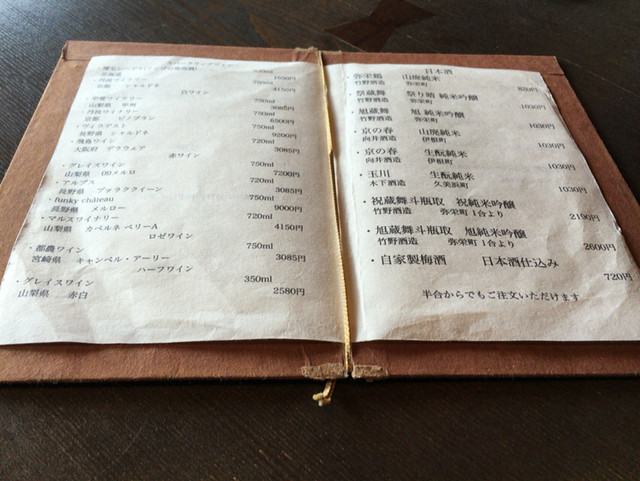 スパークリングワイン
北海道
・丹波ワイナリー 750ml 1650円
京都 シャルドネ 4150円
白ワイン
・甲州ワイナリー 750ml
山梨県 甲州 3085円
・丹波ワイナリー 750ml
京都 ピノブラン 6500円
・ヴィラデスト 750ml
長野県 シャルドネ 9200円
・飛鳥ワイン 720ml
大阪府 デラウェア 3085円
赤ワイン
・グレイスワイン 750ml
山梨県 メルロ 7200円
・アルプス 720ml
長野県 ブラッククイーン 3085円
・funky château 750ml
長野県 メルロー 9000円
・マルスワイナリー 720ml
山梨県 カベルネ ベリーA 4150円
ロゼワイン
・都農ワイン 750ml
宮崎県 キャンベル・アーリー 3085円
ハーフワイン
・グレイスワイン 350ml
山梨県 赤白 2580円
日本酒
・弥栄鶴 山廃純米
竹野酒造 弥栄町 820円
・祭蔵舞 祭り晴 純米吟醸
竹野酒造 弥栄町 1030円
・旭蔵舞 旭 純米吟醸
竹野酒造 弥栄町 1030円
・京の春 山廃純米
向井酒造 伊根町 1030円
・京の春 生酛純米
向井酒造 伊根町 1030円
・玉川 生酛純米
木下酒造 久美浜町 1030円
・祝蔵舞斗瓶取 祝純米吟醸
竹野酒造 弥栄町 1合より 2100円
・旭蔵舞斗瓶取 旭純米吟醸
竹野酒造 弥栄町 1合より 2600円
・自家製梅酒 日本酒仕込み
720円
半合からでもご注文いただけます